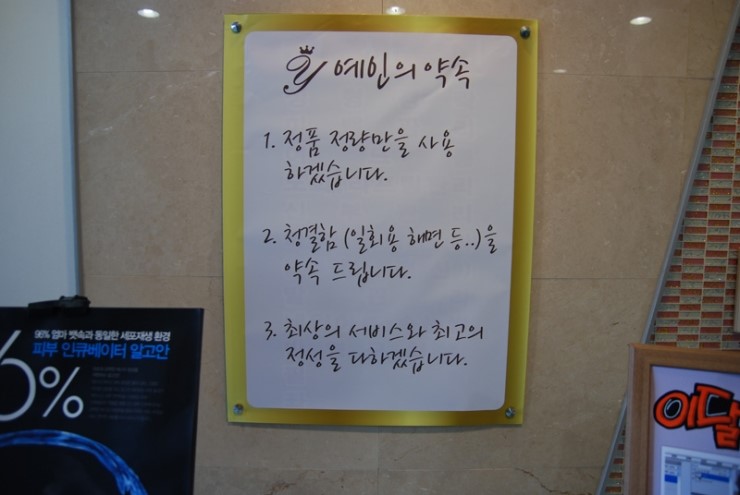 예인의 약속
1. 정품 정량만을 사용
하겠습니다.
2. 청결함 (일회용 해면 등..)을
약속 드립니다.
3. 최상의 서비스와 최고의
정성을 다하겠습니다.
96% 엄마 뱃속과 동일한 세포재생 환경
피부 인큐베이터 알고안
6%
이달